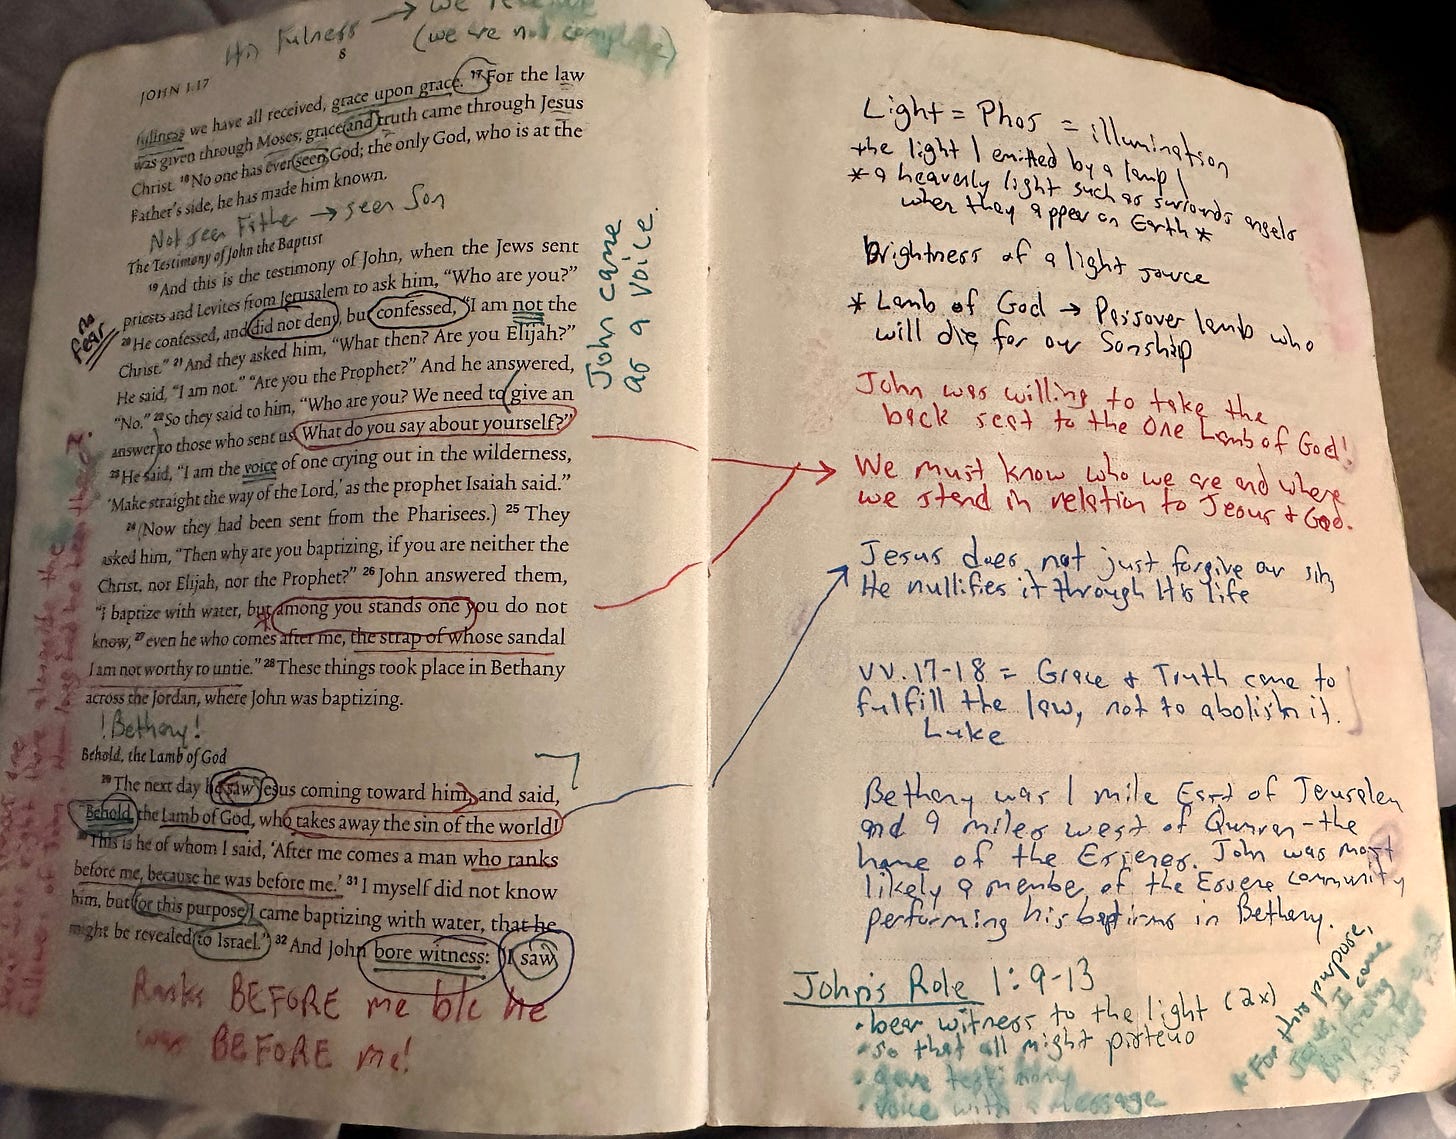 His fulness → we receive
(we are not complete)
8
JOHN 1:17
fullness we have all received, grace upon grace. 17 For the law
was given through Moses; grace and truth came through Jesus
Christ. 18 No one has ever seen God; the only God, who is at the
Father's side, he has made him known.
Not seen Father → seen Son
The Testimony of John the Baptist
19 And this is the testimony of John, when the Jews sent
priests and Levites from Jerusalem to ask him, “Who are you?”
20 He confessed, and did not deny, but confessed, “I am not the
Christ.” 21 And they asked him, “What then? Are you Elijah?”
He said, “I am not.” “Are you the Prophet?” And he answered,
“No.” 22 So they said to him, “Who are you? We need to give an
answer to those who sent us. What do you say about yourself?”
23 He said, “I am the voice of one crying out in the wilderness,
‘Make straight the way of the Lord,’ as the prophet Isaiah said.”
24 (Now they had been sent from the Pharisees.) 25 They
asked him, “Then why are you baptizing, if you are neither the
Christ, nor Elijah, nor the Prophet?” 26 John answered them,
“I baptize with water, but among you stands one you do not
know, 27 even he who comes after me, the strap of whose sandal
I am not worthy to untie.” 28 These things took place in Bethany
across the Jordan, where John was baptizing.
! Bethany !
Behold, the Lamb of God
29 The next day he saw Jesus coming toward him, and said,
“Behold, the Lamb of God, who takes away the sin of the world!
30 This is he of whom I said, ‘After me comes a man who ranks
before me, because he was before me.’ 31 I myself did not know
him, but for this purpose I came baptizing with water, that he
might be revealed to Israel.” 32 And John bore witness: “I saw
Ranks BEFORE me b/c He
was BEFORE me!
no
fear
John came
as a voice.
Light = Phos = illumination
the light / emitted by a lamp /
* a heavenly light such as surrounds angels
when they appear on Earth *
brightness of a light source
* Lamb of God → Passover lamb who
will die for our Sonship
John was willing to take the
back seat to the One Lamb of God!
We must know who we are and where
we stand in relation to Jesus + God.
Jesus does not just forgive our sin,
He nullifies it through His life
vv. 17-18 = Grace + Truth came to
fulfill the law, not to abolish it.
Luke
Bethany was 1 mile East of Jerusalem
and 9 miles west of Qumran - the
home of the Essenes. John was most
likely a member of the Essene community
performing his baptisms in Bethany.
John's Role 1:9-13
• bear witness to the light (2x)
• so that all might pisteuo
• gave testimony
• voice with a message
* For this purpose,
I came
baptizing